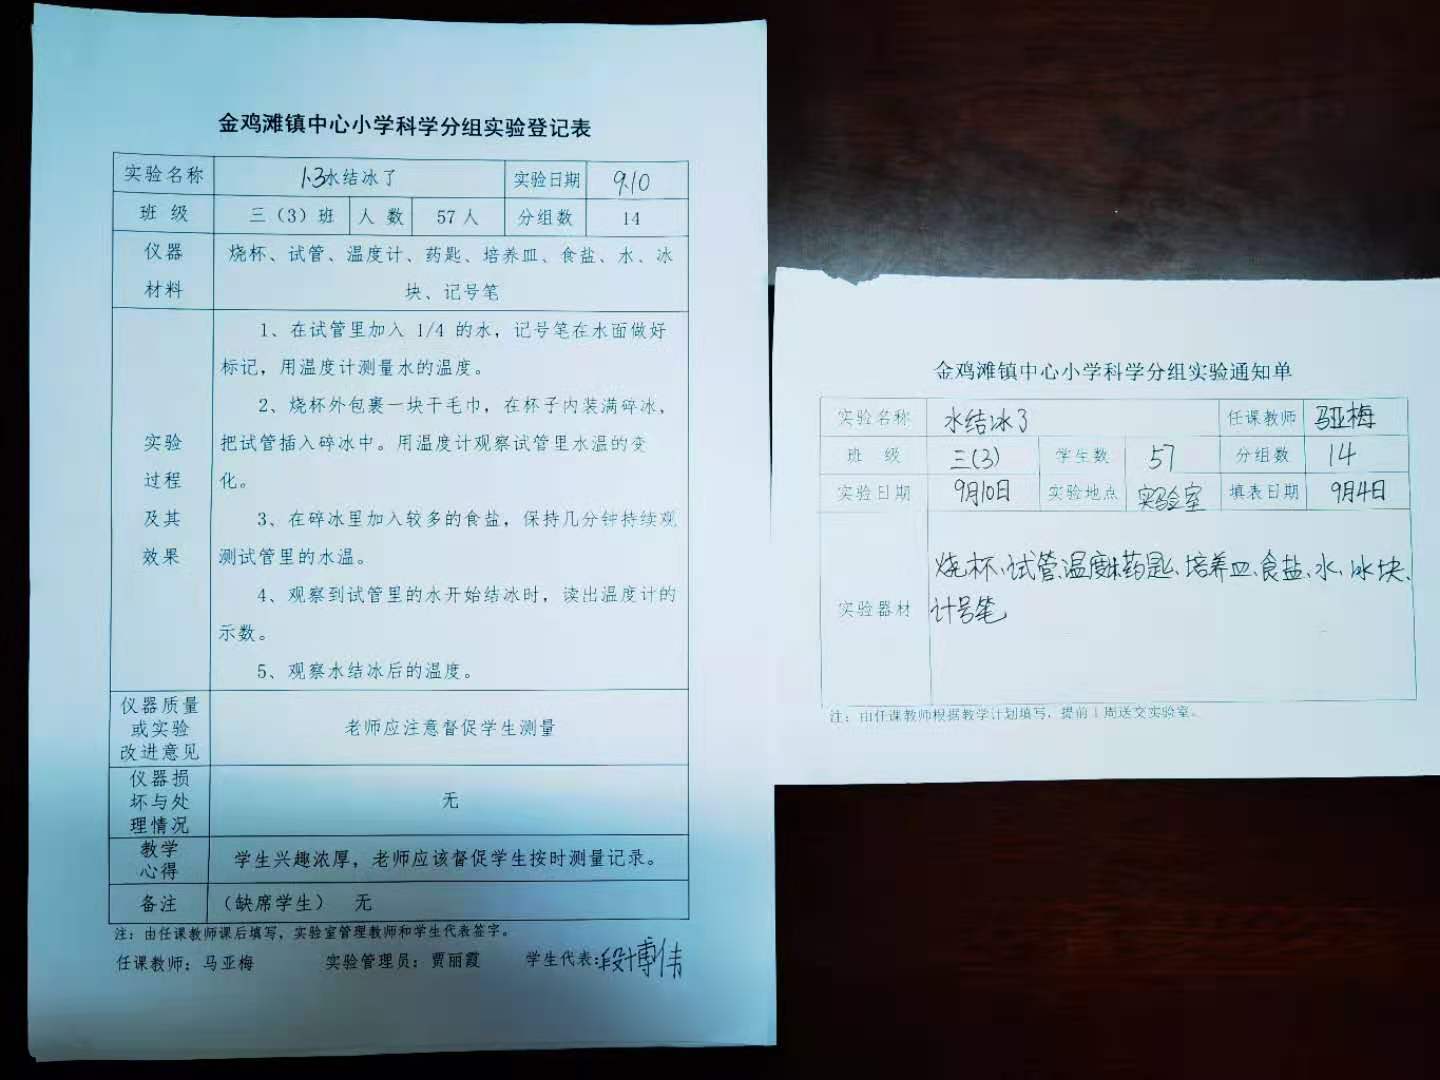 金鸡滩镇中心小学科学分组实验登记表
实验名称 1.3水结冰了 实验日期 9.10
班 级 三（3）班 人 数 57人 分组数 14
仪器
材料
烧杯、试管、温度计、药匙、培养皿、食盐、水、冰
块、记号笔
实验
过程
及其
效果
1、在试管里加入 1/4 的水，记号笔在水面做好
标记，用温度计测量水的温度。
2、烧杯外包裹一块干毛巾，在杯子内装满碎冰，
把试管插入碎冰中。用温度计观察试管里水温的变
化。
3、在碎冰里加入较多的食盐，保持几分钟持续观
测试管里的水温。
4、观察到试管里的水开始结冰时，读出温度计的
示数。
5、观察水结冰后的温度。
仪器质量
或实验
改进意见
老师应注意督促学生测量
仪器损
坏与处
理情况
无
教学
心得
学生兴趣浓厚，老师应该督促学生按时测量记录。
备注 （缺席学生） 无
注：由任课教师课后填写，实验室管理教师和学生代表签字。
任课教师：马亚梅 实验管理员：贾丽霞 学生代表：段博伟
金鸡滩镇中心小学科学分组实验通知单
实验名称 水结冰了 任课教师 马亚梅
班 级 三(3) 学生数 57 分组数 14
实验日期 9月10日 实验地点 实验室 填表日期 9月4日
实验器材
烧杯、试管、温度计、药匙、培养皿、食盐、水、冰块、
计号笔
注：由任课教师根据教学计划填写，提前1周送交实验室。